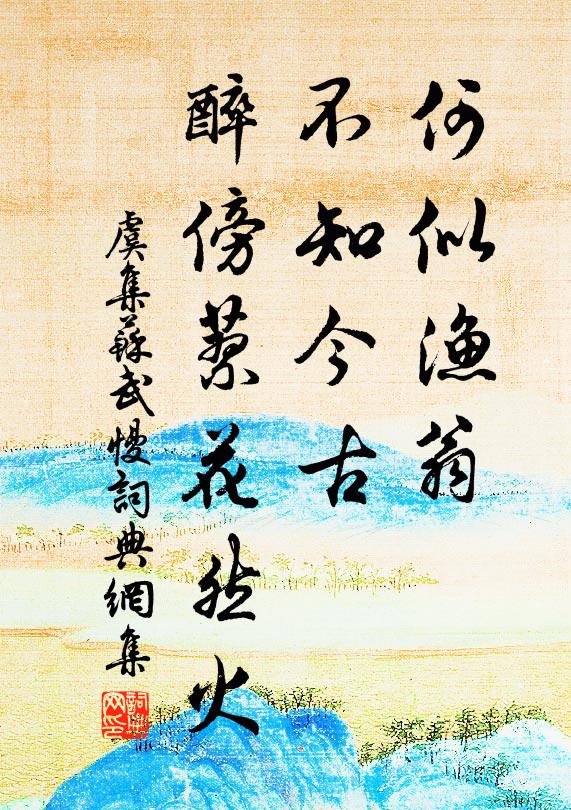 何似漁翁
不知今古
醉傍蓼花然火
虞集蘇武慢詞典網集